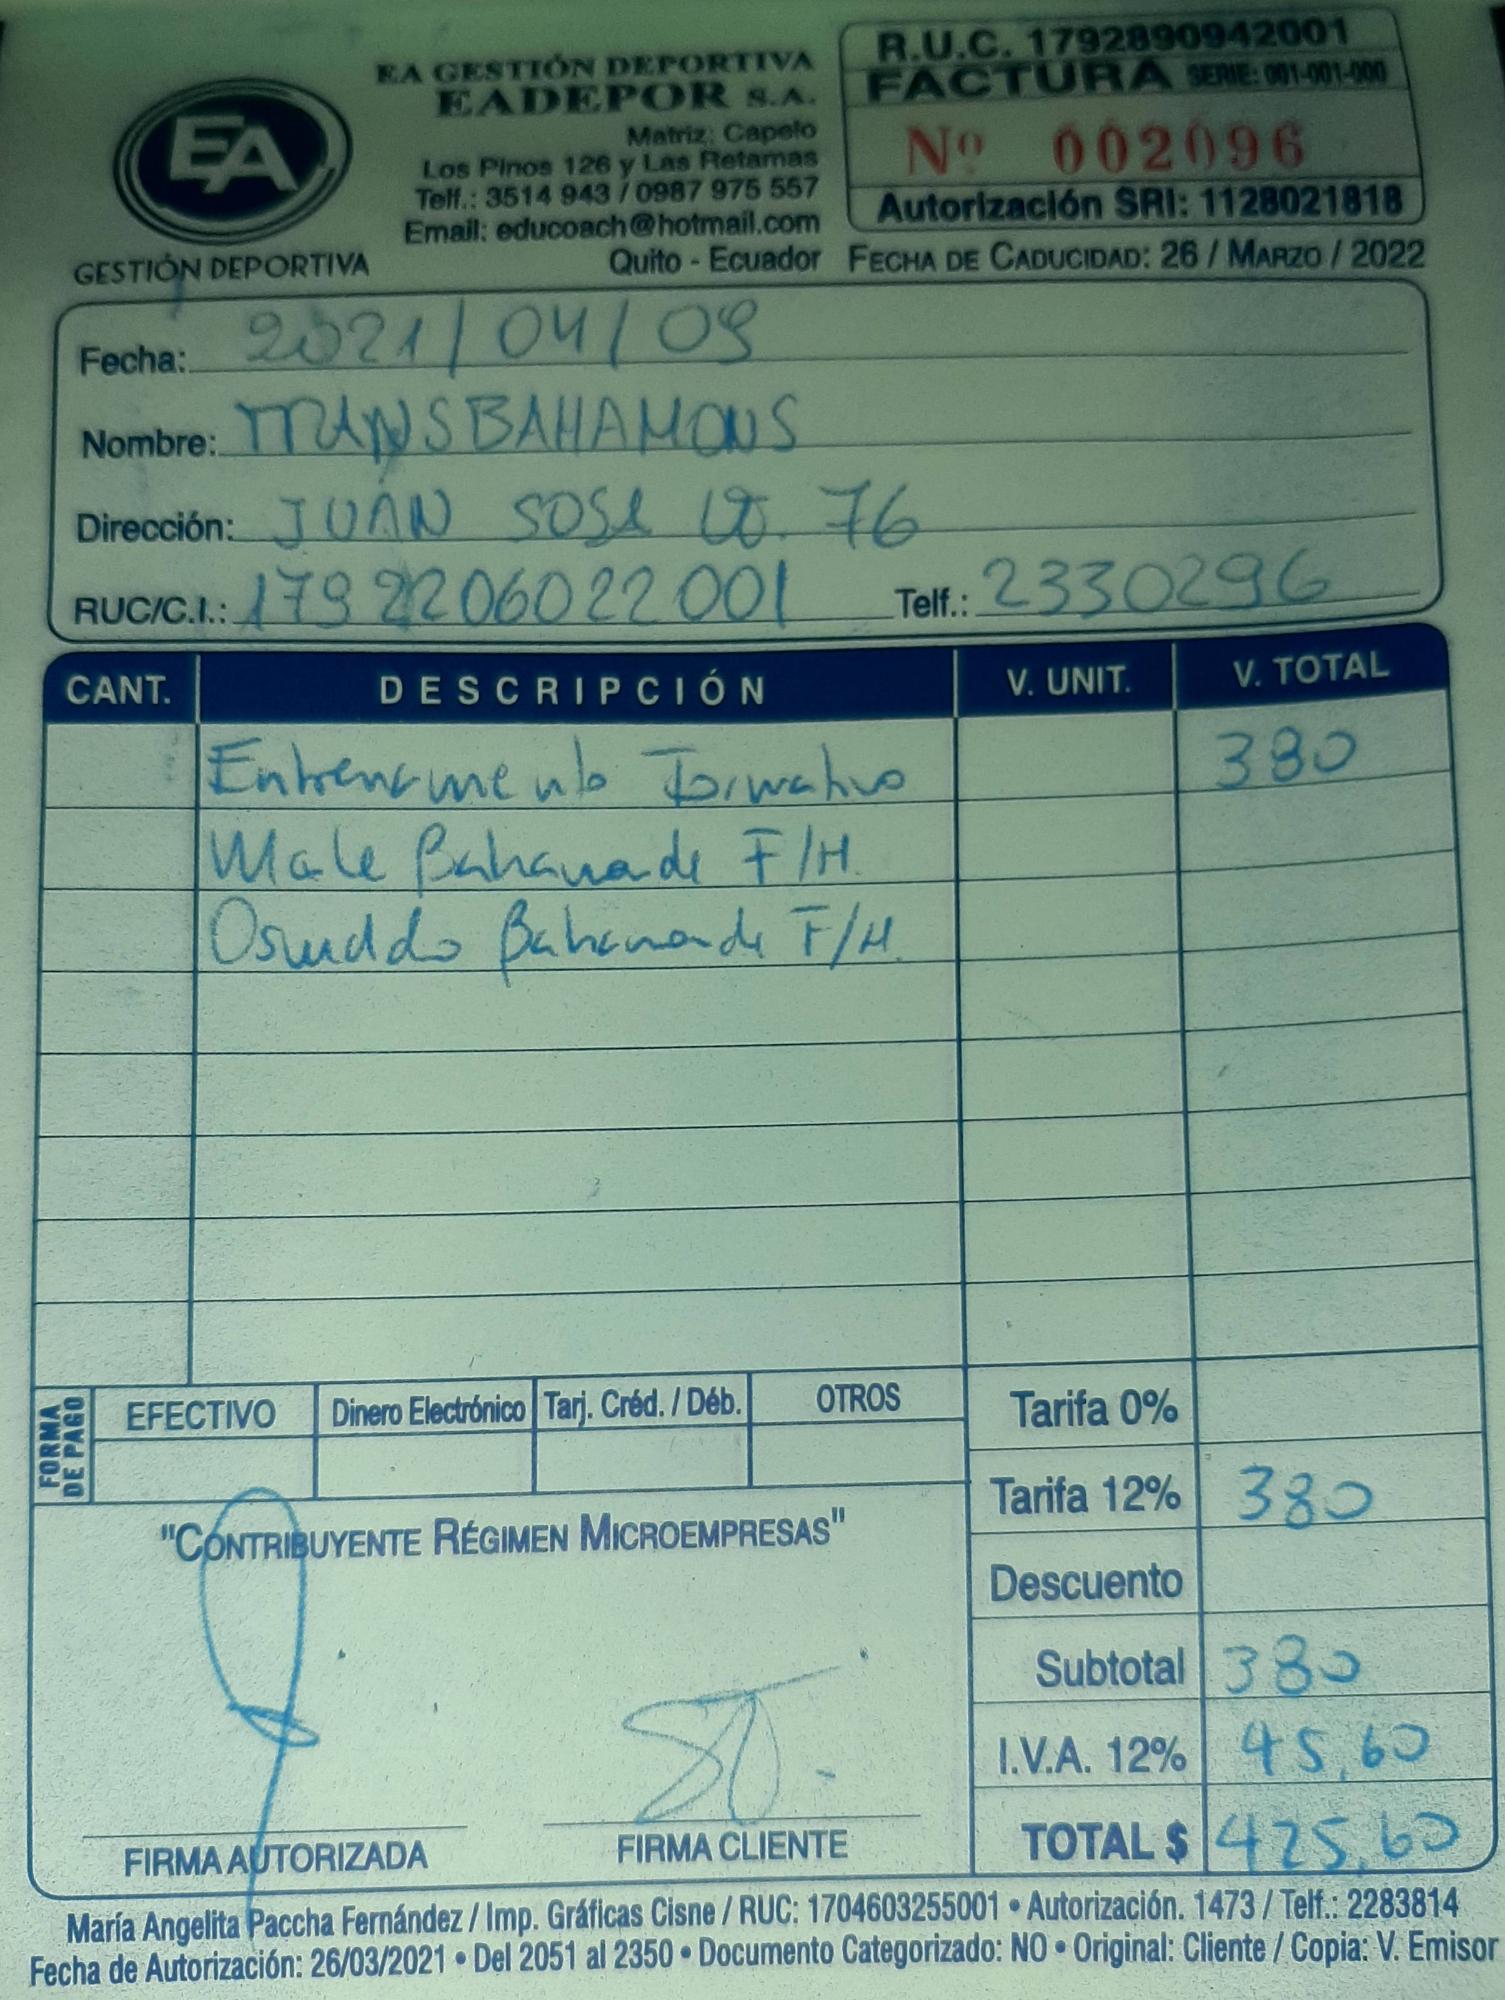 EA GESTIÓN DEPORTIVA
EADEPOR S.A.
Matriz: Capelo
Los Pinos 126 y Las Retamas
Telf.: 3514 943 / 0987 975 557
Email: educoach@hotmail.com
Quito - Ecuador
EA
GESTIÓN DEPORTIVA
R.U.C. 1792890942001
FACTURA SERIE: 001-001-000
Nº 002096
Autorización SRI: 1128021818
FECHA DE CADUCIDAD: 26 / MARZO / 2022
Fecha: 2021/04/09
Nombre: TRANSBAHAMONS
Dirección: JUAN SOSA 76
RUC/C.I.: 1792206022001 Telf.: 2330296
CANT. DESCRIPCIÓN V. UNIT. V. TOTAL
Entrenamento Formativo 380
Male Bahamonde F/H.
Osvaldo Bahamonde F/H.
FORMA DE PAGO
EFECTIVO Dinero Electrónico Tarj. Créd. / Déb. OTROS
Tarifa 0%
Tarifa 12% 380
Descuento
Subtotal 380
I.V.A. 12% 45,60
TOTAL $ 425,60
"CONTRIBUYENTE RÉGIMEN MICROEMPRESAS"
FIRMA AUTORIZADA FIRMA CLIENTE
María Angelita Paccha Fernández / Imp. Gráficas Cisne / RUC: 1704603255001 • Autorización. 1473 / Telf.: 2283814
Fecha de Autorización: 26/03/2021 • Del 2051 al 2350 • Documento Categorizado: NO • Original: Cliente / Copia: V. Emisor